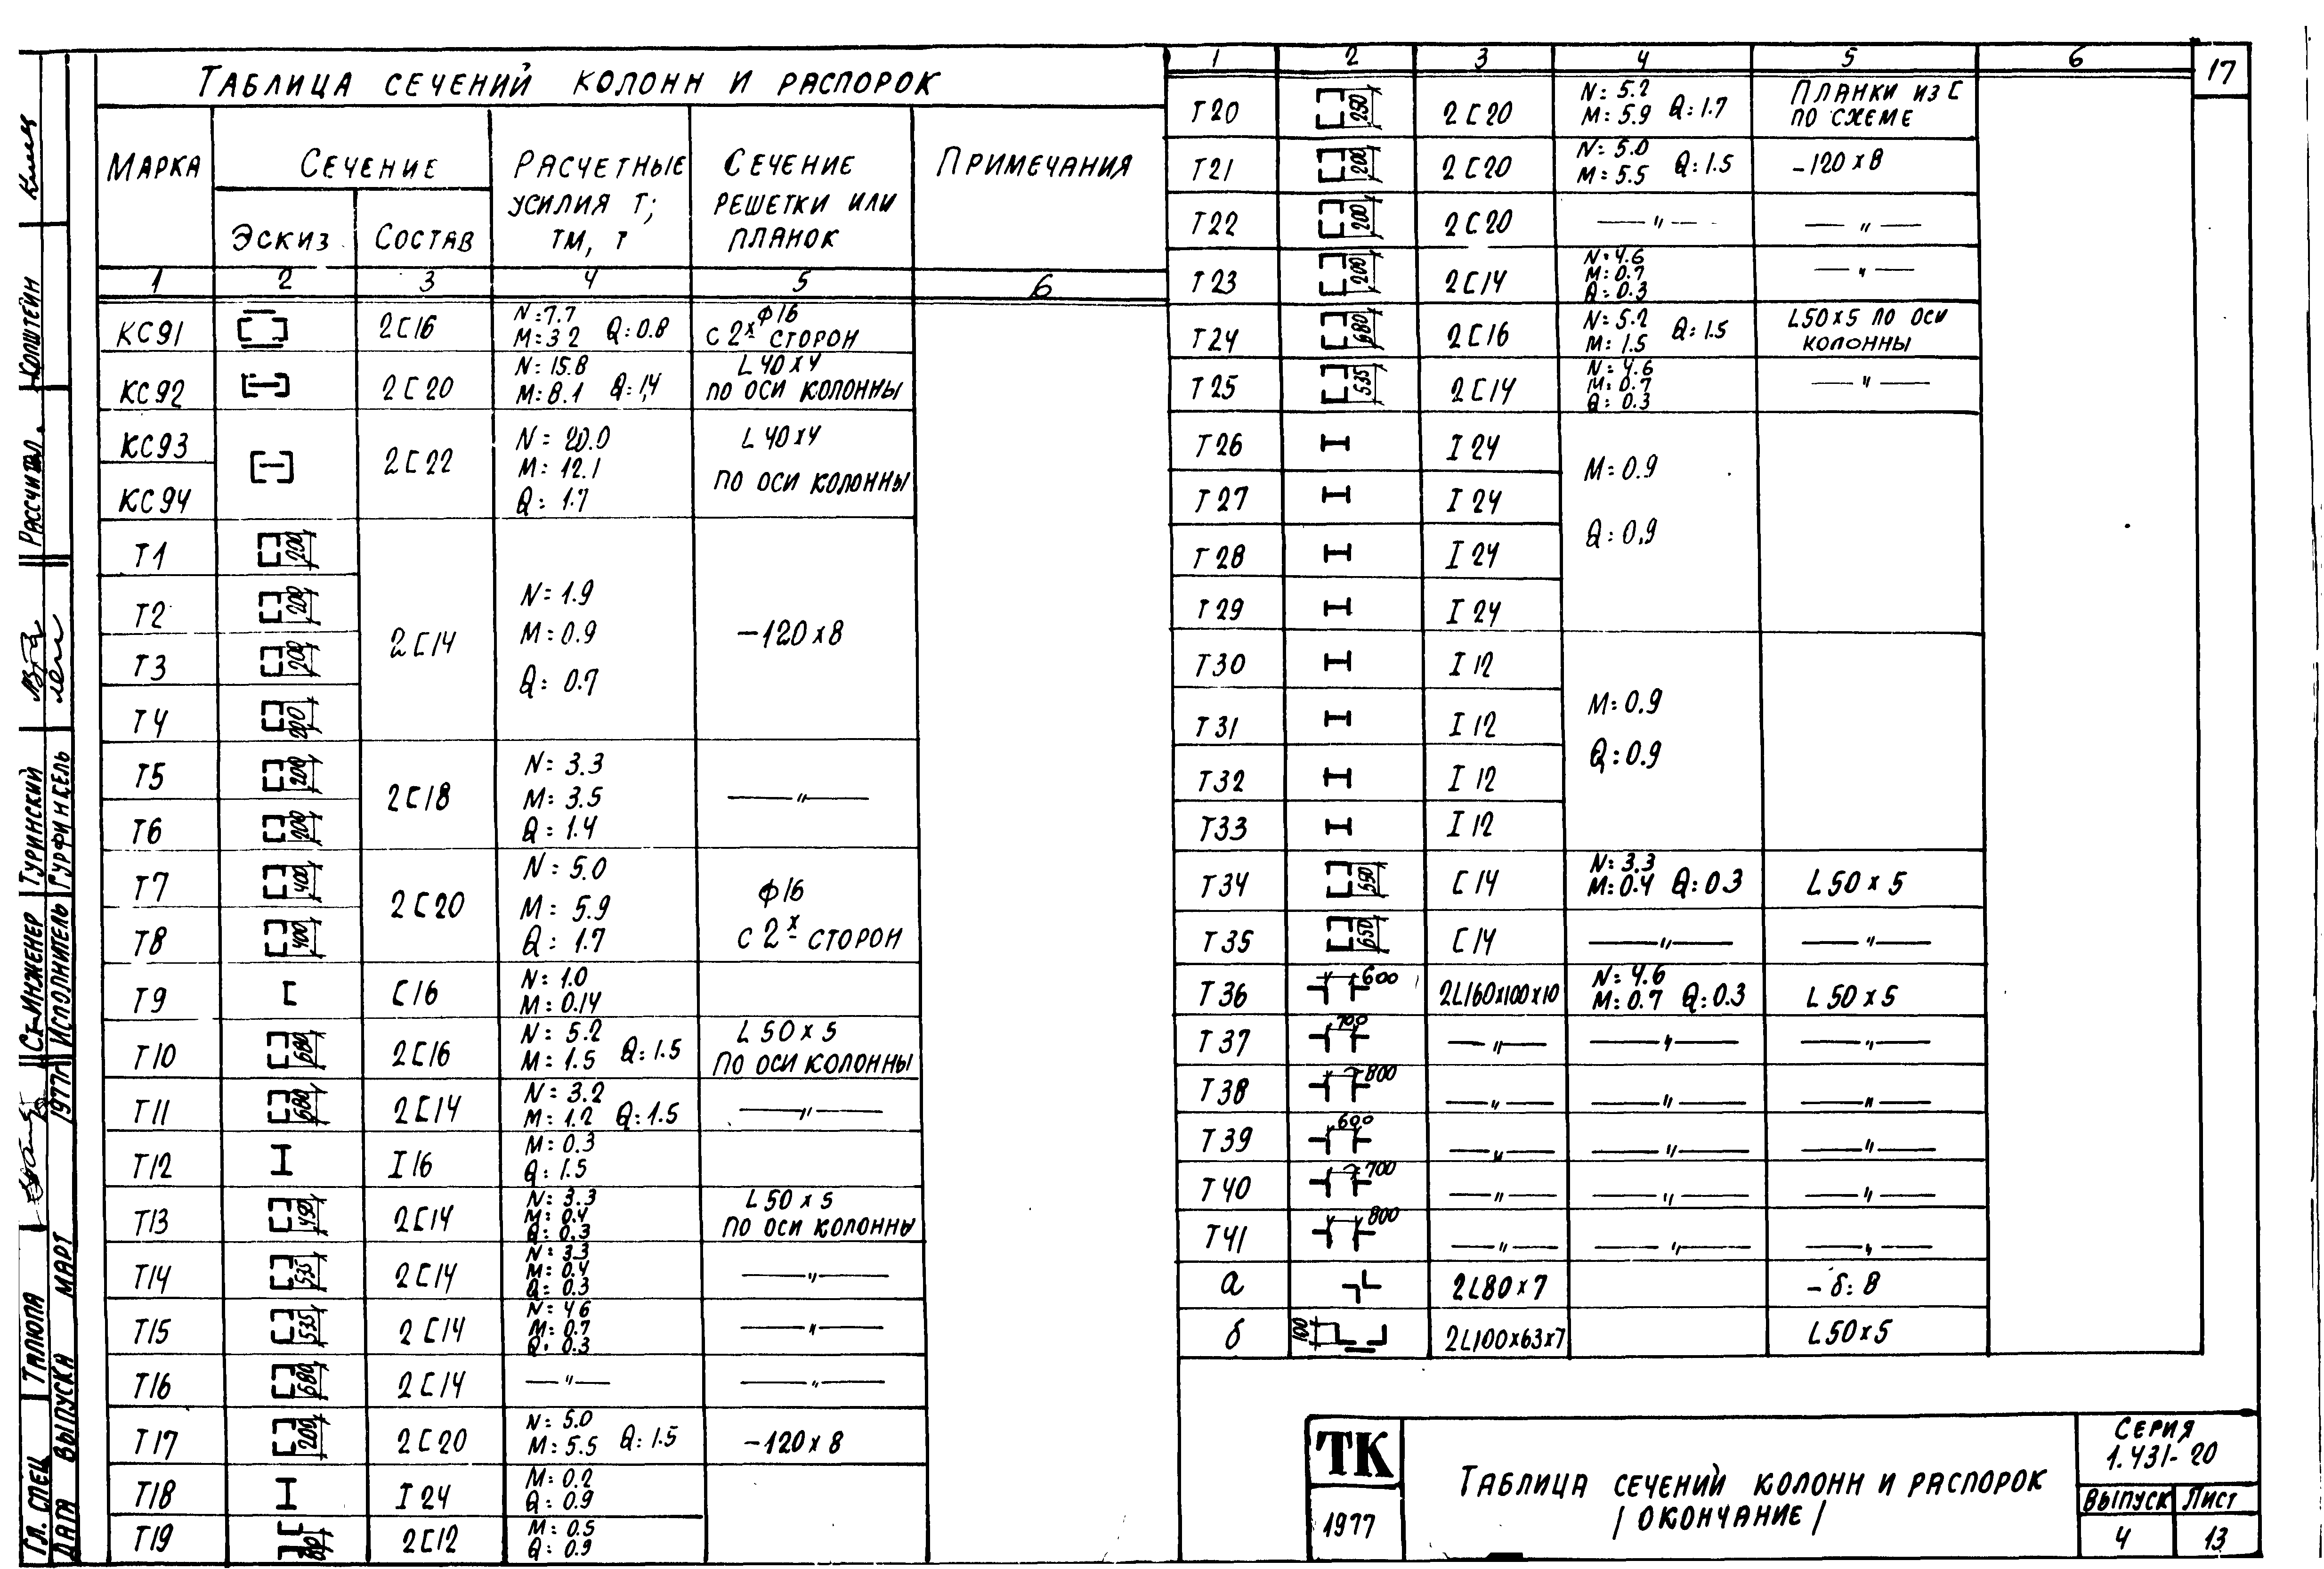 ТАБЛИЦА СЕЧЕНИЙ КОЛОНН И РАСПОРОК
МАРКА СЕЧЕНИЕ РАСЧЕТНЫЕ УСИЛИЯ Т; ТМ, Т СЕЧЕНИЕ РЕШЕТКИ ИЛИ ПЛАНОК ПРИМЕЧАНИЯ
ЭСКИЗ СОСТАВ
1 2 3 4 5 6
КС91 2[16 N=7.7 M=3.2 Q=0.8 ф16 С 2х СТОРОН
КС92 2[20 N=15.8 M=8.1 Q=1,4 L40x4 ПО ОСИ КОЛОННЫ
КС93 2[22 N=20.0 M=12.1 Q=1.7 L40x4 ПО ОСИ КОЛОННЫ
КС94
Т1 200 2[14 N=1.9 M=0.9 Q=0.7 -120x8
Т2 200
Т3 200
Т4 200
Т5 200 2[18 N=3.3 M=3.5 Q=1.4 —"—
Т6 200
Т7 400 2[20 N=5.0 M=5.9 Q=1.7 ф16 С 2х СТОРОН
Т8 400
Т9 [16 N=1.0 M=0.14
Т10 680 2[16 N=5.2 M=1.5 Q=1.5 L50x5 ПО ОСИ КОЛОННЫ
Т11 680 2[14 N=3.2 M=1.2 Q=1.5 —"—
Т12 I16 M=0.3 Q=1.5
Т13 450 2[14 N=3.3 M=0.4 Q=0.3 L50x5 ПО ОСИ КОЛОННЫ
Т14 535 2[14 N=3.3 M=0.4 Q=0.3 —"—
Т15 535 2[14 N=4.6 M=0.7 Q=0.3 —"—
Т16 680 2[14 —"— —"—
Т17 200 2[20 N=5.0 M=5.5 Q=1.5 -120x8
Т18 I24 M=0.2 Q=0.9
Т19 2[12 M=0.5 Q=0.9
1 2 3 4 5 6
17
Т20 250 2[20 N=5.2 M=5.9 Q=1.7 ПЛАНКИ ИЗ [ ПО СХЕМЕ
Т21 200 2[20 N=5.0 M=5.5 Q=1.5 -120x8
Т22 200 2[20 —"— —"—
Т23 200 2[14 N=4.6 M=0.7 Q=0.3 —"—
Т24 680 2[16 N=5.2 M=1.5 Q=1.5 L50x5 ПО ОСИ КОЛОННЫ
Т25 535 2[14 N=4.6 M=0.7 Q=0.3 —"—
Т26 I24 M=0.9 Q=0,9
Т27 I24
Т28 I24
Т29 I24
Т30 I12 M=0.9 Q=0.9
Т31 I12
Т32 I12
Т33 I12
Т34 550 [14 N=3.3 M=0.4 Q=0.3 L50x5
Т35 650 [14 —"— —"—
Т36 600 2L160x100x10 N=4.6 M=0.7 Q=0.3 L50x5
Т37 700 —"— —"— —"—
Т38 800 —"— —"— —"—
Т39 600 —"— —"— —"—
Т40 700 —"— —"— —"—
Т41 800 —"— —"— —"—
а 2L80x7 -δ=8
б 100 2L100x63x7 L50x5
ТК
1977
ТАБЛИЦА СЕЧЕНИЙ КОЛОНН И РАСПОРОК
/ОКОНЧАНИЕ/
СЕРИЯ
1.431-20
ВЫПУСК ЛИСТ
4 13
РАССЧИТАЛ КОПШТЕЙН
СТ.ИНЖЕНЕР ТУРИНСКИЙ
ИСПОЛНИТЕЛЬ ГУРФИНКЕЛЬ
ГЛ. СПЕЦ ТАЛЮПА
ДАТА ВЫПУСКА МАРТ 1977г